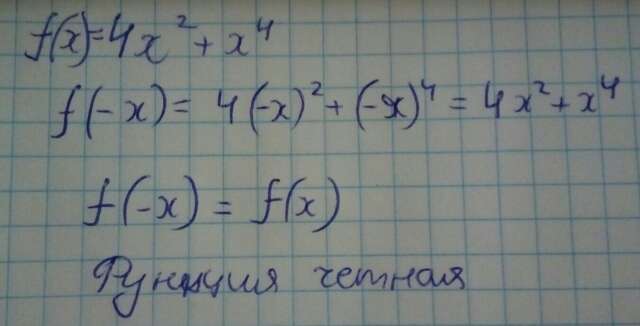 f(x)=4x²+x⁴
f(-x)= 4(-x)²+(-x)⁴=4x²+x⁴
f(-x) = f(x)
Функция четная